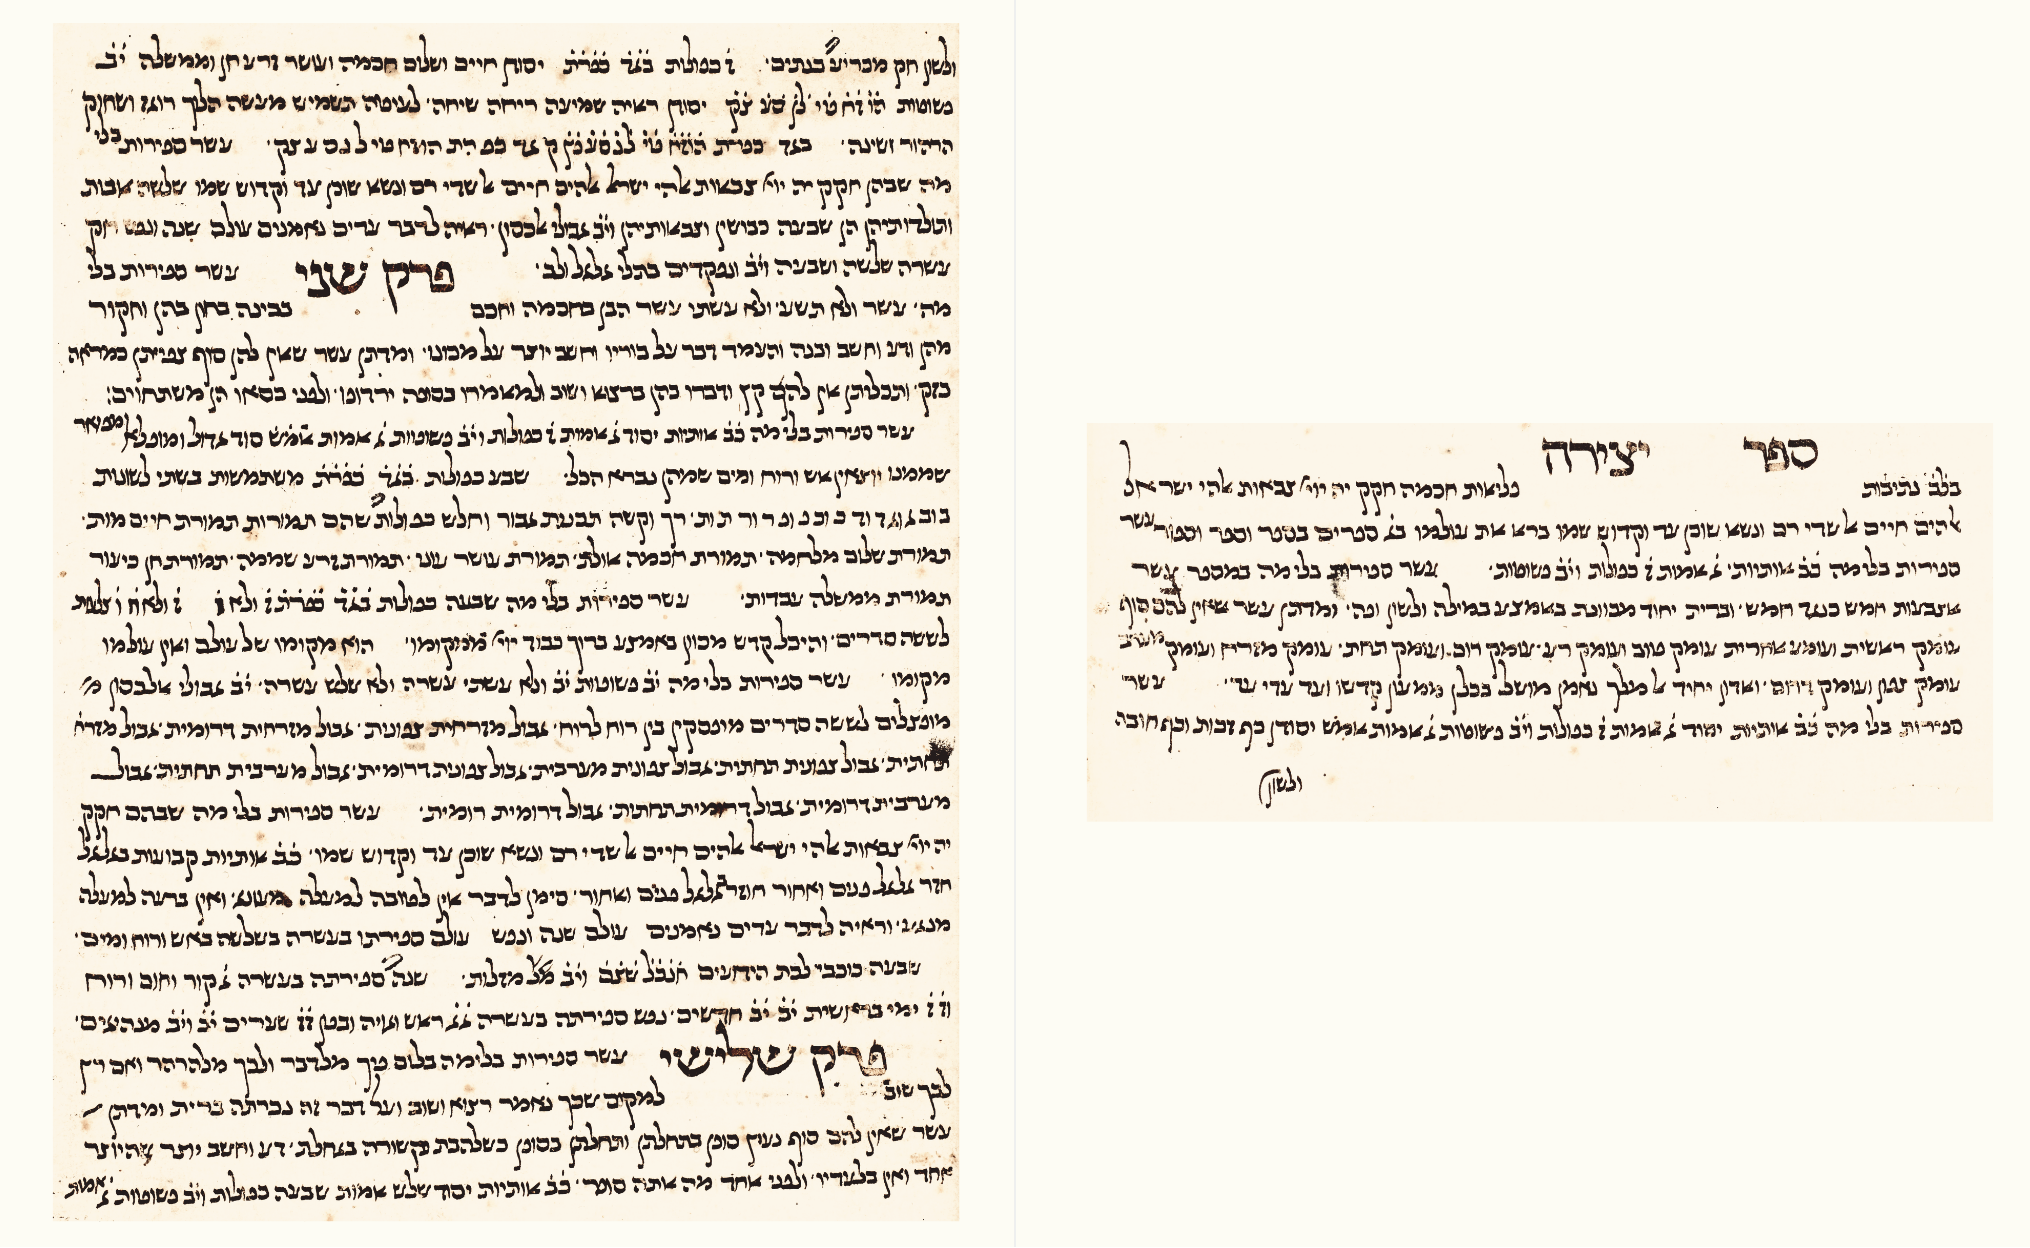 ספר יצירה
בלב נתיבות פליאות חכמה חקק יה יוי צבאות אלהי ישראל
אלהים חיים אל שדי רם ונשא שוכן עד וקדוש שמו ברא את עולמו בג ספרים בספר וספר וספור עשר
ספירות בלי מה כב אותיות ג אמות ז כפולות ויב פשוטות עשר ספירות בלי מה במספר עשר
אצבעות חמש כנגד חמש וברית יחוד מכוונת באמצע במילה ולשון ופה ומדתן עשר שאין להם סוף
עומק ראשית ועומק אחרית עומק טוב ועומק רע עומק רום ועומק תחת עומק מזרח ועומק מערב
עומק צפון ועומק דרום ואדון יחיד אל מלך נאמן מושל בכלן ממעון קדשו ועד עדי עד עשר
ספירות בלי מה כב אותיות יסוד ג אמות ז כפולות ויב פשוטות ג אמות אמש יסודן כף זכות וכף חובה
ולשון
ולשון חק מכריע בנתים ז כפולות בגד כפרת יסודן חיים ושלום חכמה ועושר זרע חן וממשלה יב
פשוטות הו זח טי לן סע צק יסודן ראיה שמיעה ריחה שיחה לעיטה תשמיש מעשה הלוך רוגז ושחוק
הרהור ושינה בגד כפרת הוזח טי לנסעצק בגד כפ רת הוזח טי ל נס ע צק עשר ספירות בלי
מה שבהן חקק יה יוי צבאות אלהי ישראל אלהים חיים אל שדי רם ונשא שוכן עד וקדוש שמו שלשה אבות
ותולדותיהן הן שבעה כבושין וצבאותיהן ויב גבולי אלכסון ראיה לדבר עדים נאמנים עולם שנה ונפש חק
עשרה שלשה ושבעה ויב ופקדים בתלי גלגל ולב פרק שני עשר ספירות בלי
מה עשר ולא תשע ולא עשתי עשר הבן בחכמה וחכם בבינה בחון בהן וחקור
מהן ודע וחשב ובנה והעמד דבר על בוריו וחשב יוצר על מכונו ומדתן עשר שאין להן סוף צפייתן כמראה
בזק ותכליתן אין להן קץ ודברו בהן ברצוא ושוב ולמאמרו כסופה ירדופו ולפני כסאו הן משתחוים
עשר ספירות בלי מה כב אותיות יסוד ג אמות ז כפולות ויב פשוטות ג אמות אמש סוד גדול ומופלא ומפואר
שממנו יוצאין אש ורוח ומים שמהן נברא הכל שבע כפולות בגד כפרת משתמשות בשתי לשונות
ב וב ג וג ד וד כ וכ פ ופ ר ור ת ות רך וקשה תבנית גבור וחלש כפולות שהם תמורות תמורת חיים מות
תמורת שלום מלחמה תמורת חכמה אולת תמורת עושר עוני תמורת זרע שממה תמורת חן כיעור
תמורת ממשלה עבדות עשר ספירות בלי מה שבעה כפולות בגד כפרת ז ולא ו ז ולא ח ו צלעות
לששה סדרים והיכל קדש מכוון באמצע ברוך כבוד יוי ממקומו הוא מקומו של עולם ואין עולמו
מקומו עשר ספירות בלי מה יב פשוטות יב ולא עשתי עשרה ולא שלש עשרה יב גבולי אלכסון
מופצלים לששה סדרים מופסקין בין רוח לרוח גבול מזרחית צפונית גבול מזרחית דרומית גבול מזרח
תחתית גבול צפונית תחתית גבול צפונית מערבית גבול צפונית דרומית גבול מערבית תחתית גבול
מערבית דרומית גבול דרומית תחתות גבול דרומית רומית עשר ספירות בלי מה שבהם חקק
יה יוי צבאות אלהי ישראל אלהים חיים אל שדי רם ונשא שוכן עד וקדוש שמו כב אותיות קבועות בגלגל
חזר גלגל פנים ואחור חוזר גלגל פנים ואחור סימן לדבר אין לטובה למעלה מעונג ואין ברעה למעלה
מנגע וראיה לדבר עדים נאמנים עולם שנה ונפש עולם ספירתו בעשרה בשלשה באש ורוח ומים
שבעה כוכבי לכת הידועים חנכל שצם ויב מזלות שנה ספירתה בעשרה ג קור וחום ורוח
וז ז ימי בראשית יב יב חדשים נפש ספירתה בעשרה ג ג ראש וגויה ובטן ז ז שערים יב ויב מנהיגים
פרק שלישי עשר ספירות בלימה בלום פיך מלדבר ולבך מלהרהר ואם רץ
לבך שוב למקום שכך נאמר רצוא ושוב ועל דבר זה נכרתה ברית ומידתן
עשר שאין להם סוף נעוץ סופן בתחלתן ותחלתן בסופן כשלהבת קשורה בגחלת דע וחשב יתר שהיוצר
אחד ואין בלעדיו ולפני אחד מה אתה סופר כב אותיות יסוד שלש אמות שבעה כפולות ויב פשוטות ג אמות